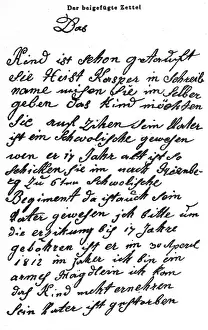 Der beigefügte Zettel
Das
Kind ist schon getauft
Sie Heist Kasper in Schreib
name misen Sie im Selber
geben das Kind möchten
Sie auf Zihen Sein Vater
ist ein Schwolische gewesen
wen er 17 Jahr alt ist so
Schicken Sie im nach Nirnberg
zu 6ten Schwolische
Begiment da ist auch Sein
Vater gewesen ich bitte um
die erzikung bis 17 Jahre
gebohren ist er im 30 Aperil
1812 im Jaher ich bin ein
armes Mägdlein ich kan
das Kind nicht ernehren
Sein Vater ist gestorben